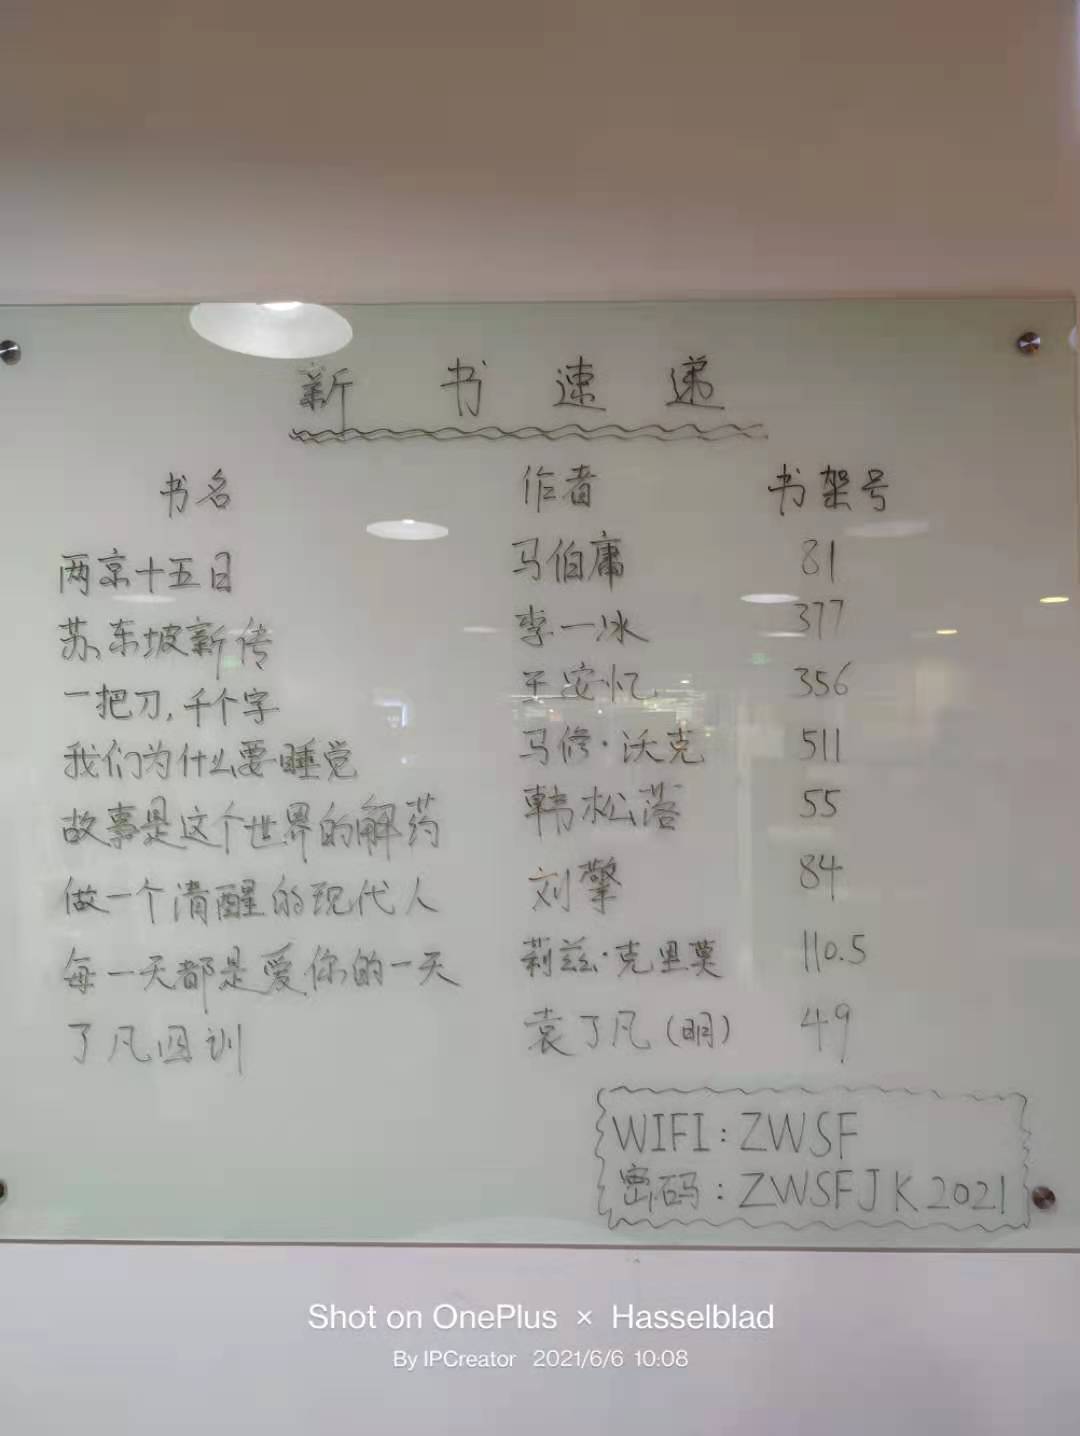 新书速递
书名 作者 书架号
两京十五日 马伯庸 81
苏东坡新传 李一冰 377
一把刀,千个字 王安忆 356
我们为什么要睡觉 马修·沃克 511
故事是这个世界的解药 韩松落 55
做一个清醒的现代人 刘擎 84
每一天都是爱你的一天 莉兹·克里莫 110.5
了凡四训 袁了凡(明) 49
WIFI:ZWSF
密码:ZWSFJK2021
Shot on OnePlus × Hasselblad
By IPCreator 2021/6/6 10:08